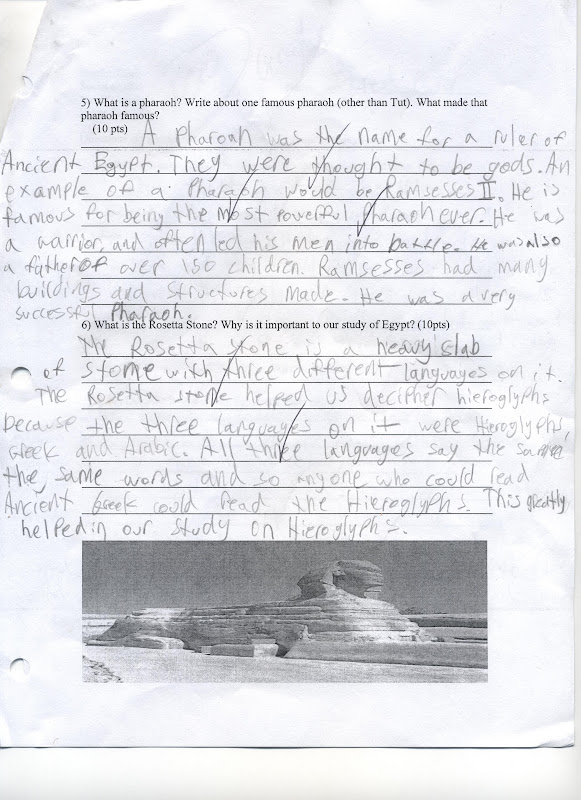 5) What is a pharaoh? Write about one famous pharaoh (other than Tut). What made that
pharaoh famous?
(10 pts) A Pharoah was the name for a ruler of
Ancient Egypt. They were thought to be gods. An
example of a Pharaoh would be Ramsesses II. He is
famous for being the most powerful Pharaoh ever. He was
a warrior, and often led his men into battle. He was also
a father of over 150 children. Ramsesses had many
buildings and structures made. He was a very
successful Pharaoh.
6) What is the Rosetta Stone? Why is it important to our study of Egypt? (10pts)
The Rosetta stone is a heavy slab
of stone with three different languages on it.
The Rosetta stone helped us decipher hieroglyphs
because the three languages on it were Hieroglyphs,
Greek and Arabic. All three languages say the same
the, same words and so anyone who could read
Ancient Greek could read the Hieroglyphs. This greatly
helped in our study on Hieroglyphs.